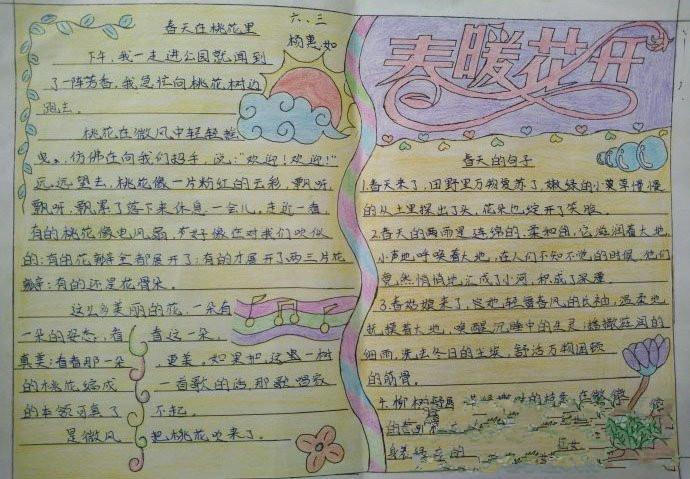 春天在桃花里
六、三
杨惠如
下午,我一走进公园就闻到
了一阵芳香,我急忙向桃花树边
跑去。
桃花在微风中轻轻摇
曳。仿佛在向我们招手,说:“欢迎!欢迎!”
远远望去,桃花像一片粉红的云彩,飘呀,
飘呀,飘累了落下来休息一会儿。走近一看,
有的桃花像电风扇,好像在对我们吹似
的;有的花瓣全都展开了;有的才展开了两三片花
瓣;有的还是花骨朵。
这么多美丽的花,一朵有
一朵的姿态,看看这一朵,
真美;看看那一朵,更美。如果把这里一树
的桃花编成一首歌的话,那歌唱家
的本领可真了不起。
是微风把桃花吹来了。
春暖花开
春天的句子
1.春天来了,田野里万物复苏了,嫩绿的小草慢慢
的从土里探出了头,花朵也绽开了笑脸。
2.春天的雨是连绵的、柔和的,它滋润着大地,
小声地呼唤着大地,在人们不知不觉的时候,他们
竟然悄悄地汇成了小河,积成了深潭。
3.春姑娘来了,宛她轻舞春风的长袖,温柔地
抚摸着大地,唤醒沉睡中的生灵;播撒滋润的
细雨,洗去冬日的尘埃,舒活万物困顿
的筋骨。
4.柳树
的
身